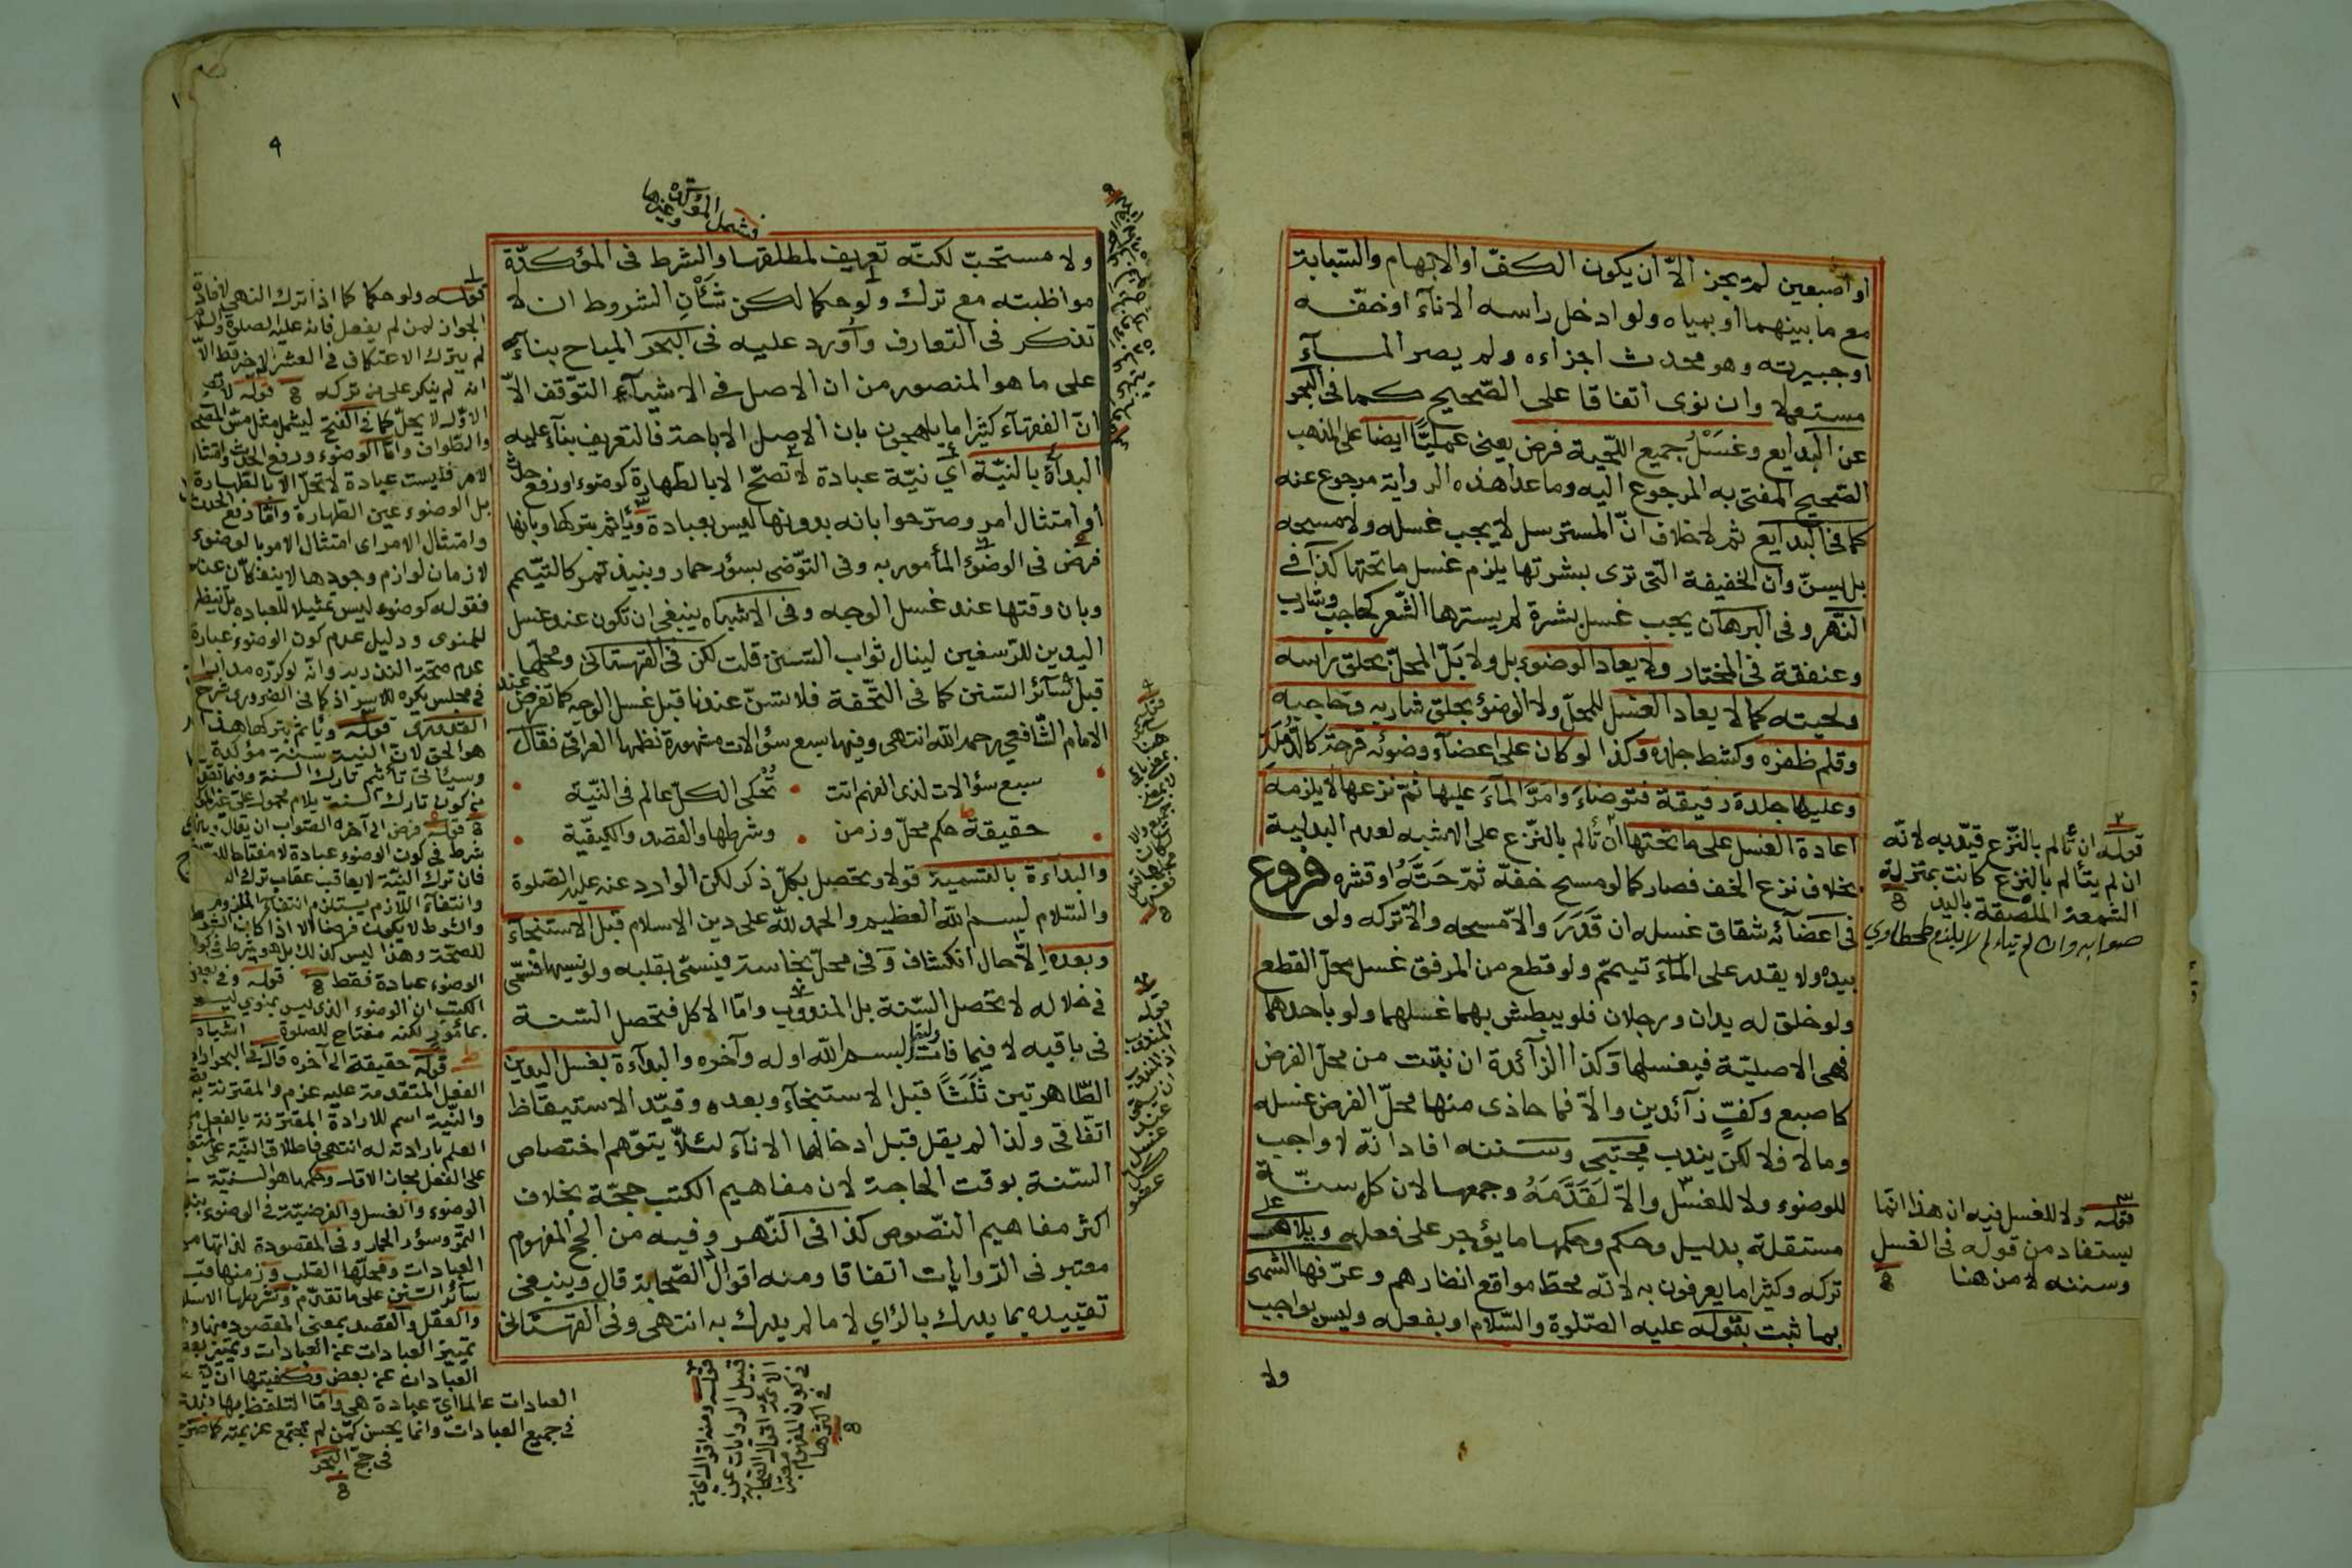 او اصبعين لم يجز الاّ ان يكون الكفّ او الابهام والسّبابة
مع ما بينهما او بمياه ولو ادخل راسه الاناء او خفّه
او جبيرته وهو محدث اجزاءه ولم يصر المآء
مستعملا وان نوى اتفاقا على الصّحيح كما فى البحر
عن البدايع وغسل جميع اللّحية فرض يعنى عمليّا ايضا على المذهب
الصّحيح المفتى به المرجوع اليه وما عدا هذه الرواية مرجوع عنه
كما فى البدايع ثم لا خلاف انّ المسترسل لا يجب غسله ولا مسحه
بل يسنّ وان الخفيفة الّتى ترى بشرتها يلزم غسل ما تحتها كذا فى
النّهر وفى البرهان يجب غسل بشرة لم يسترها الشّعر كحاجب وشارب
وعنفقة فى المختار ولا يعاد الوضوء بل ولا بلّ المحلّ بحلق راسه
ولحيته كما لا يعاد الغسل للمحلّ ولا الوضوء بحلق شاربه وحاجبه
وقلم ظفره وكشط جلده وكذا لو كان على اعضآء وضوئه قرحة كالدّمّل
وعليها جلدة رقيقة فتوضاء وامرّ المآء عليها ثمّ نزعها لا يلزمه
اعادة الغسل على ما تحتها ان تألم بالنّزع على الاشبه لعدم البدلية
بخلاف نزع الخف فصار كما لو مسح خفّه ثمّ حتّه او قشره فروع
فى اعضآئه شقاق غسله ان قدر والاّ مسحه والاّ تركه ولو
بيده ولا يقدر على المآء تيمّم ولو قطع من المرفق غسل محلّ القطع
ولو خلق له يدان ورجلان فلو يبطش بهما غسلهما ولو باحدهما
فهى الاصليّة فيغسلها وكذا الزآئدة ان نبتت من محلّ الفرض
كاصبع وكفّ زآئدين والاّ فما حاذى منها محلّ الفرض غسله
وما لا فلا لكن يندب مجتبى وسننه افاد انّه لا واجب
للوضوء ولا للغسل والاّ لقدّمه وجمعها لان كل سنّة
مستقلة بدليل وحكم وحكمها ما يؤجر على فعله ويلام على
تركه وكثيرا ما يعرفون به لانّه محطّ مواقع انظارهم وعرّفها الشمنى
بما ثبت بقوله عليه الصّلوة والسّلام او بفعله وليس بواجب
ولا
قوله ان تألم بالنّزع قيّد به لانّه
ان لم يتألم بالنزع كانت بمنزلة
الشمعة الملصقة باليد
صوابه وان لم يتاءلم لا يلزم طحطاوي
قوله ولا للغسل فيه ان هذا انّما
يستفاد من قوله فى الغسل
وسننه لا من هنا
٩
فشمل المؤكدة وغيرها
ولا مستحبّ لكنّه تعريف لمطلقها والشرط فى المؤكدّة
مواظبته مع ترك ولو حكما لكن شأن الشروط ان لا
تذكر فى التعارف وأورد عليه فى البحر المباح بنآء
على ما هو المنصور من ان الاصل فى الاشيآء التوّقف الاّ
انّ الفقهآء كثيرا ما يلهجون بان الاصل الاباحة فالتعريف بنآء عليه
البدآة بالنيّة اي نيّة عبادة لا تصحّ الا بالطهارة كوضوء او رفع حدث
او امتثال امر وصرّحوا بانه بدونها ليس بعبادة ويأثم بتركها وبانها
فرض فى الوضوء المأمور به وفى التوّضى بسؤر حمار ونبيذ تمر كالتيّمم
وبان وقتها عند غسل الوجه وفى الاشباه ينبغى ان تكون عند غسل
اليدين للرّسغين لينال ثواب السّنن قلت لكن فى القهستانى ومحلّها
قبل سآئر السّنن كما فى التّحفة فلا تسنّ عندنا قبل غسل الوجه كما تفرض عند
الامام الشّافعى رحمه اللّه انتهى وفيها سبع سؤالات مشهورة نظمها العراقى فقال
سبع سؤالات لذى الفهم اتت • تُحكى لكلّ عالم فى النّيّة
حقيقة حكم محلّ وزمن • وشرطها والقصد والكيفيّة
والبدآءة بالتسمية قولا وتحصل بكلّ ذكر لكن الوارد عنه عليه الصّلوة
والسّلام بسم اللّه العظيم والحمد للّه على دين الاسلام قبل الاستنجآء
وبعده الاّ حال انكشاف وفى محلّ نجاسة فيسمّى بقلبه ولو نسيها فسمّى
فى خلاله لا تحصل السّنة بل المندوب وامّا الاكل فتحصل السّنة
فى باقيه لا فيما فات وليقل بسم اللّه اوله وآخره والبدآءة بغسل اليدين
الطّاهرتين ثلثًا قبل الاستنجآء وبعده وقيّد الاستيقاظ
اتّفاقى ولذا لم يقل قبل ادخالهما الاناء لئلاّ يتوّهم اختصاص
السّنة بوقت الحاجة لان مفاهيم الكتب حجّة بخلاف
اكثر مفاهيم النّصوص كذا فى النّهر وفيه من الحجّ المفهوم
معتبر فى الرّوايات اتفاقا ومنه اقوال الصّحابة قال وينبغى
تقييده بما يدرك بالرّاي لا ما لم يدرك به انتهى وفى القهستانى
قوله ولو حكما كما اذا ترك النهى لافادة
الجواز لمن لم يفعل فانه عليه الصلوة والسلا
لم يترك الاعتكاف فى العشر الاخر قط الاّ
انه لم ينكر على من تركه قوله لا تصح
الاولى لا يحلّ كما فى الفتح ليشمل مثل مسّ المصحف
والطّواف وامّا الوضوء ورفع الحدث وامتثال
الامر فليست عبادة لا تحلّ الا بالطّهارة
بل الوضوء عين الطّهارة وامّا رفع الحدث
وامتثال الامر اى امتثال الامر بالوضوء
لازمان لوازم وجودها لا ينفكّان عنه
فقوله كوضوء ليس تمثيلا للعبادة بل تنظير
للمنوى ودليل عدم كون الوضوء عبادة
عدم صحّة النذر به وانّه لو كرّره مرارا
فى مجلس يكره للاسراف كما فى
القدورى قوله ويأثم بتركها هذا
هو الحق لان النية سنة مؤكدة
وسيأتى تأثيم تارك السنة
قوله فرض الى آخره الصواب ان يقال
شرط فى كون الوضوء عبادة لا مفتاحا للصّلوة
فان ترك النيّة لا يعاقب عقاب ترك
وانتفاء اللازم يستلزم انتفاء الملزوم
والشرط لا يكون فرضا الا اذا كان
للصّحة وهذا ليس كذلك بل هو شرط فى كون
الوضوء عبادة فقط قوله وفى بعض
الكتب ان الوضوء الذى ليس بمنوي ليس
بمأمور لكنه مفتاح للصلوة اشباه
قوله حقيقة الى آخره قال فى البحر
الفعل المتقدمة عليه عزم والمقترنة به
والنّيّة اسم للارادة المقترنة بالفعل
العلم بارادته له انتهى فاطلاق النيّة على
على الفعل مجاز وحكمها هو السنيّة
الوضوء والغسل والفرضيّة فى الوضوء بنبيذ
التمر وسؤر الحمار وفى المقصودة لذاتها من
العبادات ومحلّها القلب وزمنها قبل
سآئر السّنن على ما تقدّم وشرطها الاسلام
والعقل والقصد بمعنى المقصود منها
تمييز العبادات عن العادات وتمييز بعض
العبادات عن بعض وكيفيتها ان
العبادات عالما ايّ عبادة هى وامّا التلفظ بها
فى جميع العبادات وانّما يحسن لمن لم تجتمع عزيمته كما صرّح
فى حجّ البحر
قوله المندوب
عند غسل كل
عضو
قوله ومنه اقوال اى من
قبيل الروايات عن
الائمّة اقوال الصّحابة
فى كون المفهوم معتبرا
فى اكثرها